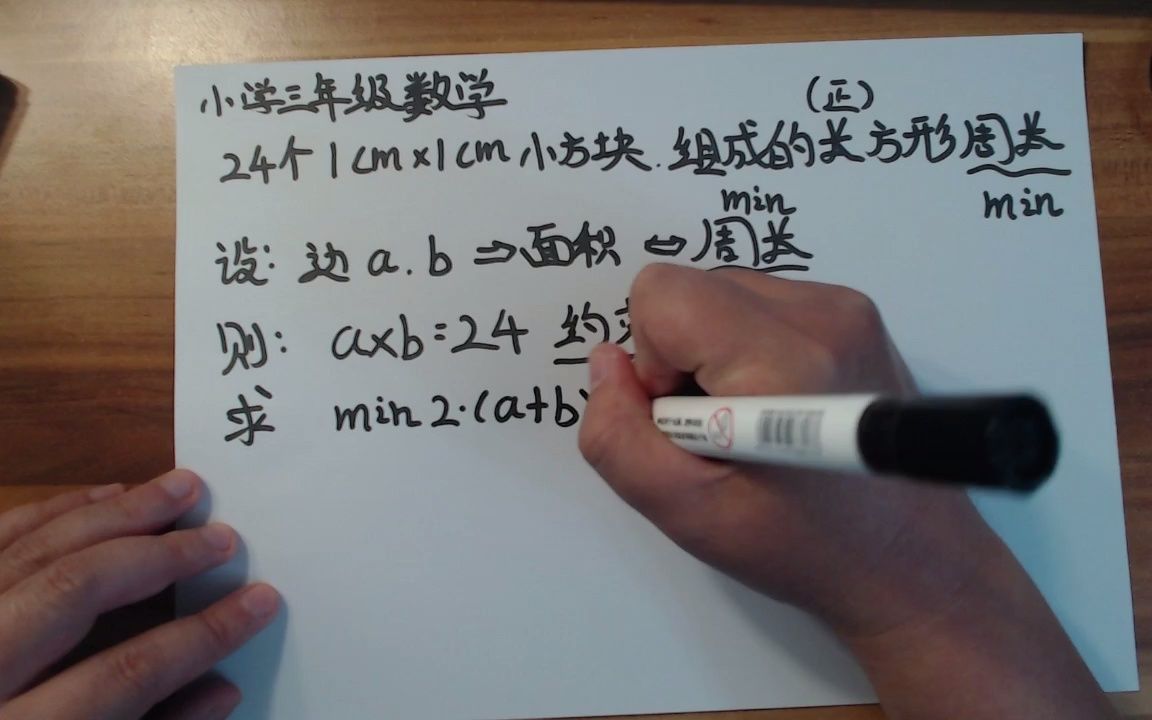 小学三年级数学
(正)
24个1cm×1cm小方块.组成的长方形周长
min
min
设: 边a.b ⇒面积 ⇔周长
则: a×b=24 约
求 min2·(a+b)